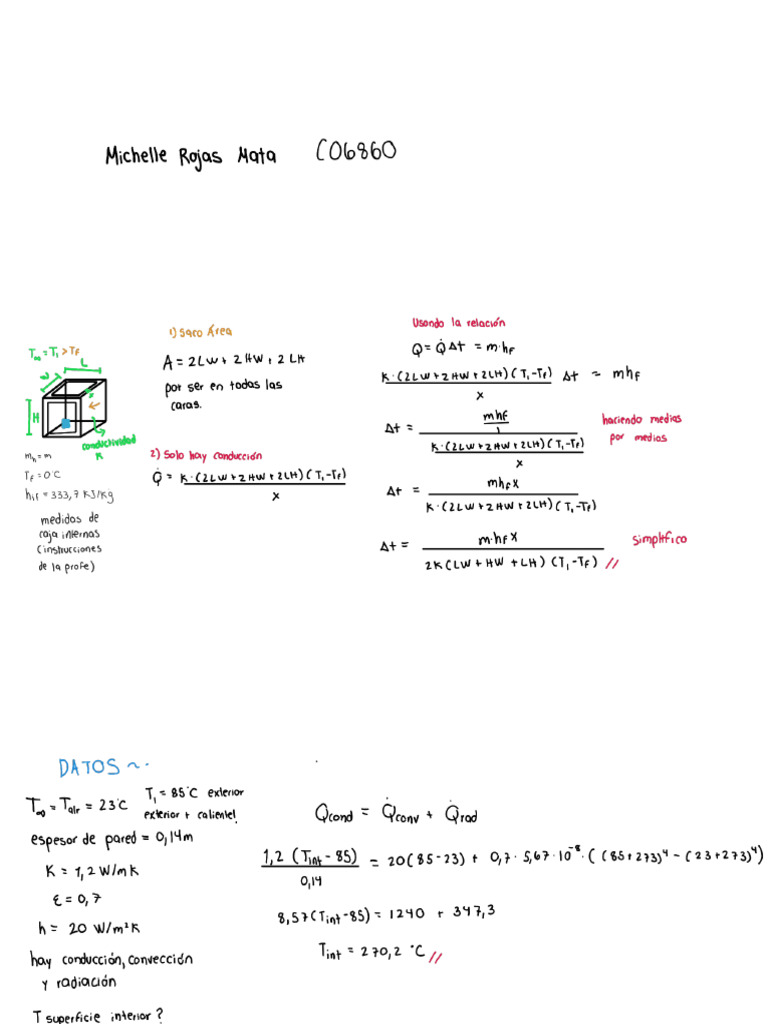 Michelle Rojas Mata C06860
T∞ = T₁ > Tf
L
W
x
H
conductividad
K
mh = m
Tf = 0°C
hif = 333,7 KJ/Kg
medidas de
caja internas
(instrucciones
de la profe)
1) Saco Área
A = 2LW + 2HW + 2LH
por ser en todas las
caras.
2) Solo hay conducción
Q̇ = K·(2LW+2HW+2LH)(T₁-Tf) / x
Usando la relación
Q = Q̇ Δt = m·hf
K·(2LW+2HW+2LH)(T₁-Tf) / x Δt = mhf
Δt = (mhf / 1) / (K·(2LW+2HW+2LH)(T₁-Tf) / x)
haciendo medias
por medios
Δt = mhfx / K·(2LW+2HW+2LH)(T₁-Tf)
Δt = m·hfx / 2K(LW+HW+LH)(T₁-Tf) //
simplifico
DATOS ~.
T∞ = Tair = 23°C
T₁ = 85°C exterior
exterior + caliente!
espesor de pared = 0,14m
K = 1,2 W/mK
ε = 0,7
h = 20 W/m²K
hay conducción, convección
y radiación
T superficie interior?
Q̇cond = Q̇conv + Q̇rad
1,2 (Tint - 85) / 0,14 = 20(85-23) + 0,7·5,67·10⁻⁸·((85+273)⁴-(23+273)⁴)
8,57(Tint-85) = 1240 + 347,3
Tint = 270,2 °C //